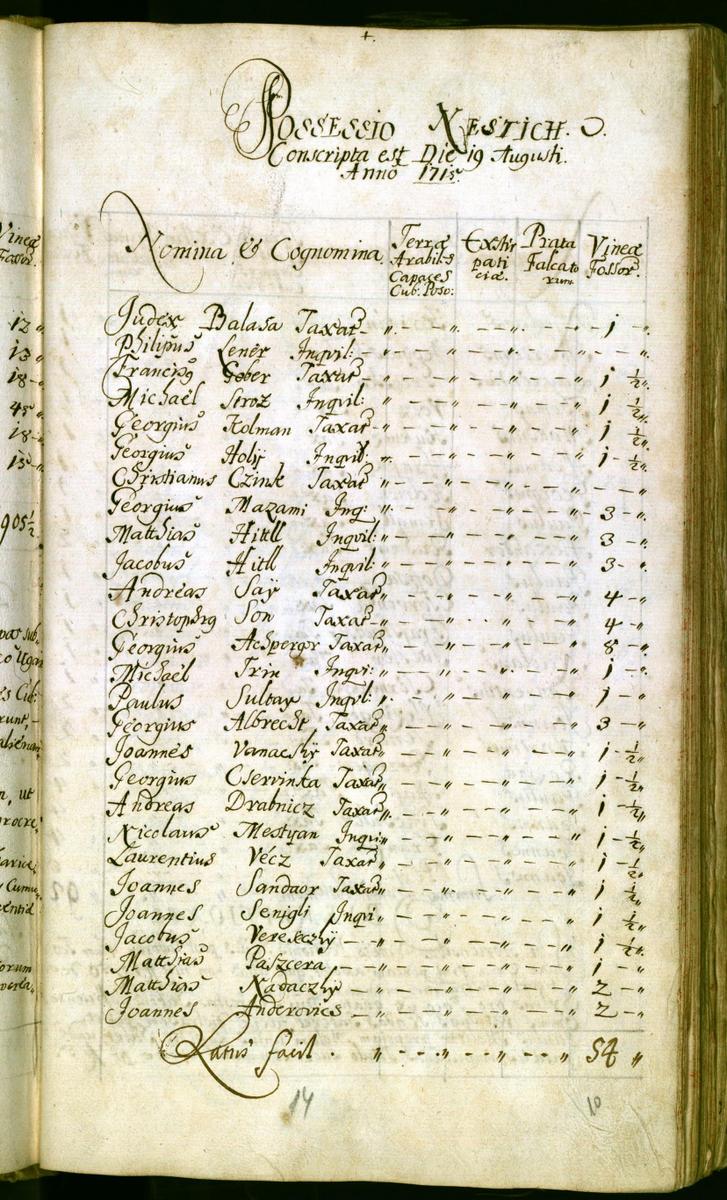 Possessio Nestich.
Conscripta est Die 19 Augusti.
Anno 1715.
Nomina & Cognomina. Terræ Arabiles Capaces Cub: Poso: Exstirpaticiæ. Prata Falcatorum Vineæ Fossor:
Judex Balasa Taxat „ - - „ - - „ - - „ 1 - „
Philipus Lener Inqvil: „ - - „ - - „ - - „ - - „
Franciscus Gober Taxat „ - - „ - - „ - - „ 1 ½ „
Michaël Stroz Inqvil: „ - - „ - - „ - - „ 1 ½ „
Georgius Kolman Taxat „ - - „ - - „ - - „ 1 ½ „
Georgius Holÿ Inqvil: „ - - „ - - „ - - „ 1 - ½ „
Christianus Czink Taxat „ - - „ - - „ - - „ - - „
Georgius Mazami Inq: „ - - „ - - „ - - „ 3 - „
Matthias Hitll Inqvil: „ - - „ - - „ - - „ 3 - „
Jacobus Hitll Inqvil: „ - - „ - - „ - - „ 3 - „
Andreas Saÿ Taxat „ - - „ - - „ - - „ 4 - „
Christophorus Son Taxat „ - - „ - - „ - - „ 4 - „
Georgius Achperger Taxat „ - - „ - - „ - - „ 8 - „
Michaël Trin Inqvi: „ - - „ - - „ - - „ 1 - „
Paulus Sultay Inqvl: „ - - „ - - „ - - „ 1 - „
Georgius Albrecht Taxat „ - - „ - - „ - - „ 3 - „
Joannes Vanacsÿ Taxat „ - - „ - - „ - - „ 1 - ½ „
Georgius Cservinka Taxat „ - - „ - - „ - - „ 1 - ½ „
Andreas Drabnicz Taxat „ - - „ - - „ - - „ 1 - ½ „
Nicolaus Mestyan Inqvi „ - - „ - - „ - - „ 1 - ½ „
Laurentius Vécz Taxat „ - - „ - - „ - - „ 1 - ½ „
Joannes Sandaor Taxat „ - - „ - - „ - - „ 1 ½ „
Joannes Senigli Inqvi „ - - „ - - „ - - „ 1 ½ „
Jacobus Vereszÿ - - „ - - „ - - „ - - „ 1 ½ „
Matthias Paszcera - - „ - - „ - - „ - - „ 1 - „
Matthias Nadaczky - - „ - - „ - - „ - - „ 2 - „
Joannes Anderovics - - „ - - „ - - „ - - „ 2 - „
Latus facit . „ - - „ - - „ - - „ 54 „
14 10